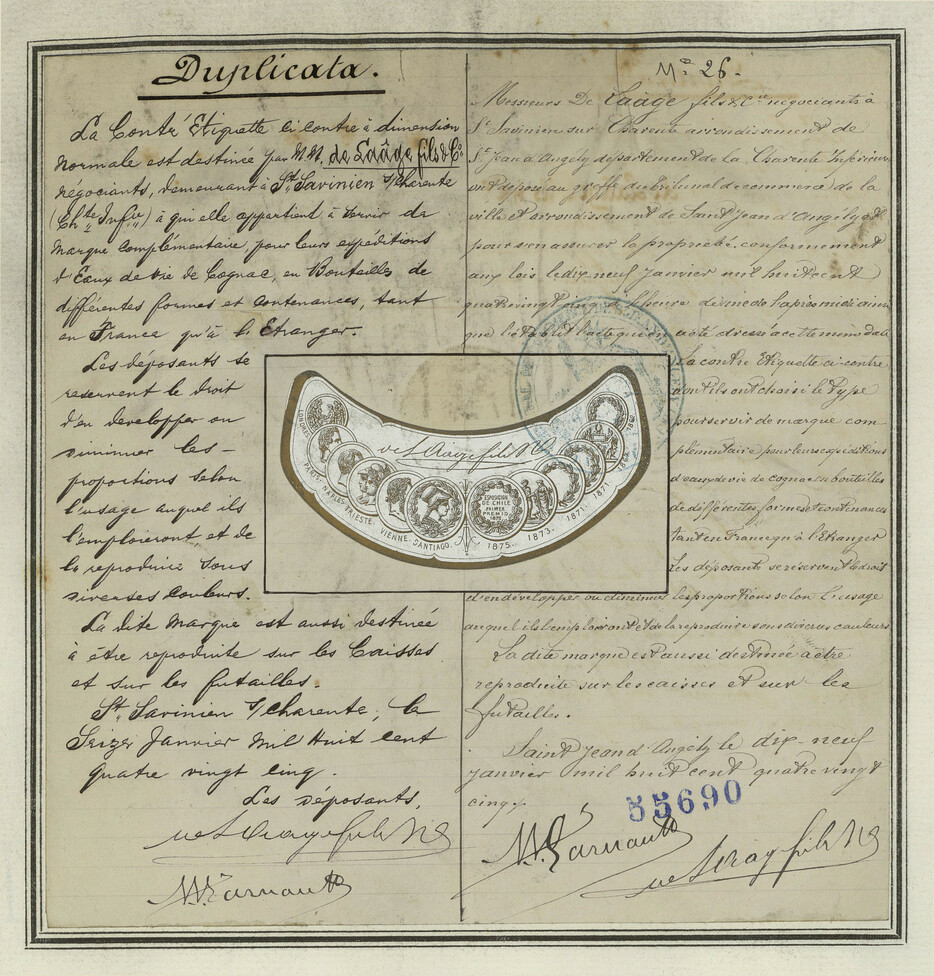 Duplicata.
La Contre Etiquette ci contre à dimension
normale est destinée par M.M. de Laâge fils & Cº
négociants, demeurant à St. Savinien s/Charente
(Chte Infre) à qui elle appartient à servir de
marque complémentaire, pour leurs expéditions
d'Eaux de vie de Cognac, en Bouteilles de
différentes formes et contenances, tant
en France qu'à l'Etranger.
Les déposants se
reservent le droit
d'en developper ou
diminuer les
proportions selon
l'usage auquel ils
l'emploieront et de
la reproduire sous
diverses couleurs.
La dite marque est aussi destinée
à être reproduite sur les Caisses
et sur les futailles.
St. Savinien s/Charente, le
Seize Janvier Mil Huit cent
quatre vingt cinq.
Les déposants,
de Laage fils & Cº
Nº 26.
Messieurs De Laâge fils & Cie négociants à
St Savinien sur Charente arrondissement de
St Jean d'Angély département de la Charente Inférieure
ont déposé au greffe du tribunal de commerce de la
ville et arrondissement de Saint Jean d'Angély et
pour s'en assurer la propriété, conformement
aux lois le dix neuf Janvier mil huit cent
quatre vingt cinq à heure de midi après midi ainsi
que le établi l'acte qui en a été dressé cette même date
La contre Etiquette ci contre
dont ils ont choisi le Type
pour servir de marque com-
plémentaire pour leurs expéditions
d'eaux de vie de cognac en bouteilles
de différentes formes et contenances
tant en France qu'à l'Etranger
Les déposants se réservent le droit
d'en développer ou diminuer les proportions selon l'usage
auquel ils l'emploieront et de la reproduire sous diverses couleurs
La dite marque est aussi destinée à être
reproduite sur les caisses et sur les
futailles.
Saint Jean d'Angély le dix-neuf
janvier mil huit cent quatre vingt
cinq.
55690
de Laage fils & Cº
de Laage fils & Cº
LONDRES
PARIS. NAPLES. TRIESTE. VIENNE. SANTIAGO. 1875. 1873. 1871. 1871.
ESPOSICION
DE CHILE
PRIMER
PREMIO
1875